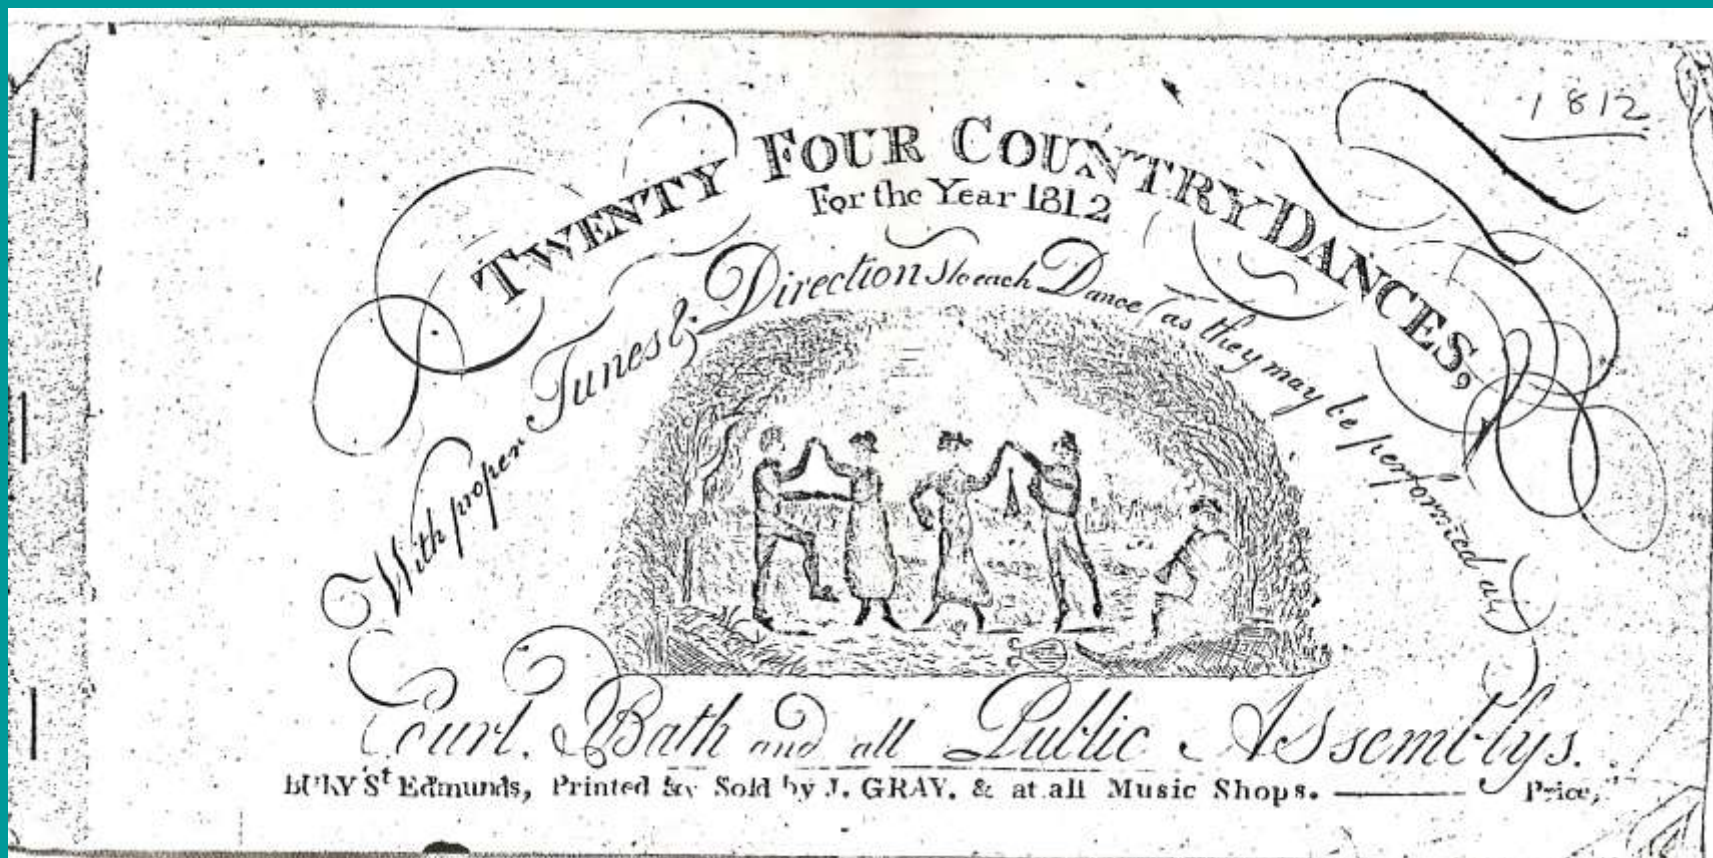 1812
TWENTY FOUR COUNTRY DANCES,
For the Year 1812
With proper Tunes & Directions to each Dance (as they may be performed at)
Court, Bath and all Public Assemblys.
BURY St Edmunds, Printed & Sold by J. GRAY. & at all Music Shops. Price,